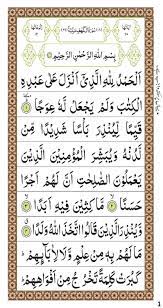 بِسْمِ اللّٰهِ الرَّحْمٰنِ الرَّحِيْمِ
اَلْحَمْدُ لِلّٰهِ الَّذِيْٓ اَنْزَلَ عَلٰى عَبْدِهِ
الْكِتٰبَ وَلَمْ يَجْعَلْ لَّهٗ عِوَجًا ۜ
قَيِّمًا لِّيُنْذِرَ بَاْسًا شَدِيْدًا مِّنْ
لَّدُنْهُ وَيُبَشِّرَ الْمُؤْمِنِيْنَ الَّذِيْنَ
يَعْمَلُوْنَ الصّٰلِحٰتِ اَنَّ لَهُمْ اَجْرًا
حَسَنًا ۙ مَّاكِثِيْنَ فِيْهِ اَبَدًا ۙ
وَّيُنْذِرَ الَّذِيْنَ قَالُوا اتَّخَذَ اللّٰهُ وَلَدًا ۙ
مَا لَهُمْ بِهٖ مِنْ عِلْمٍ وَّلَا لِاٰبَآئِهِمْ ؕ
كَبُرَتْ كَلِمَةً تَخْرُجُ مِنْ اَفْوَاهِهِمْ ؕ